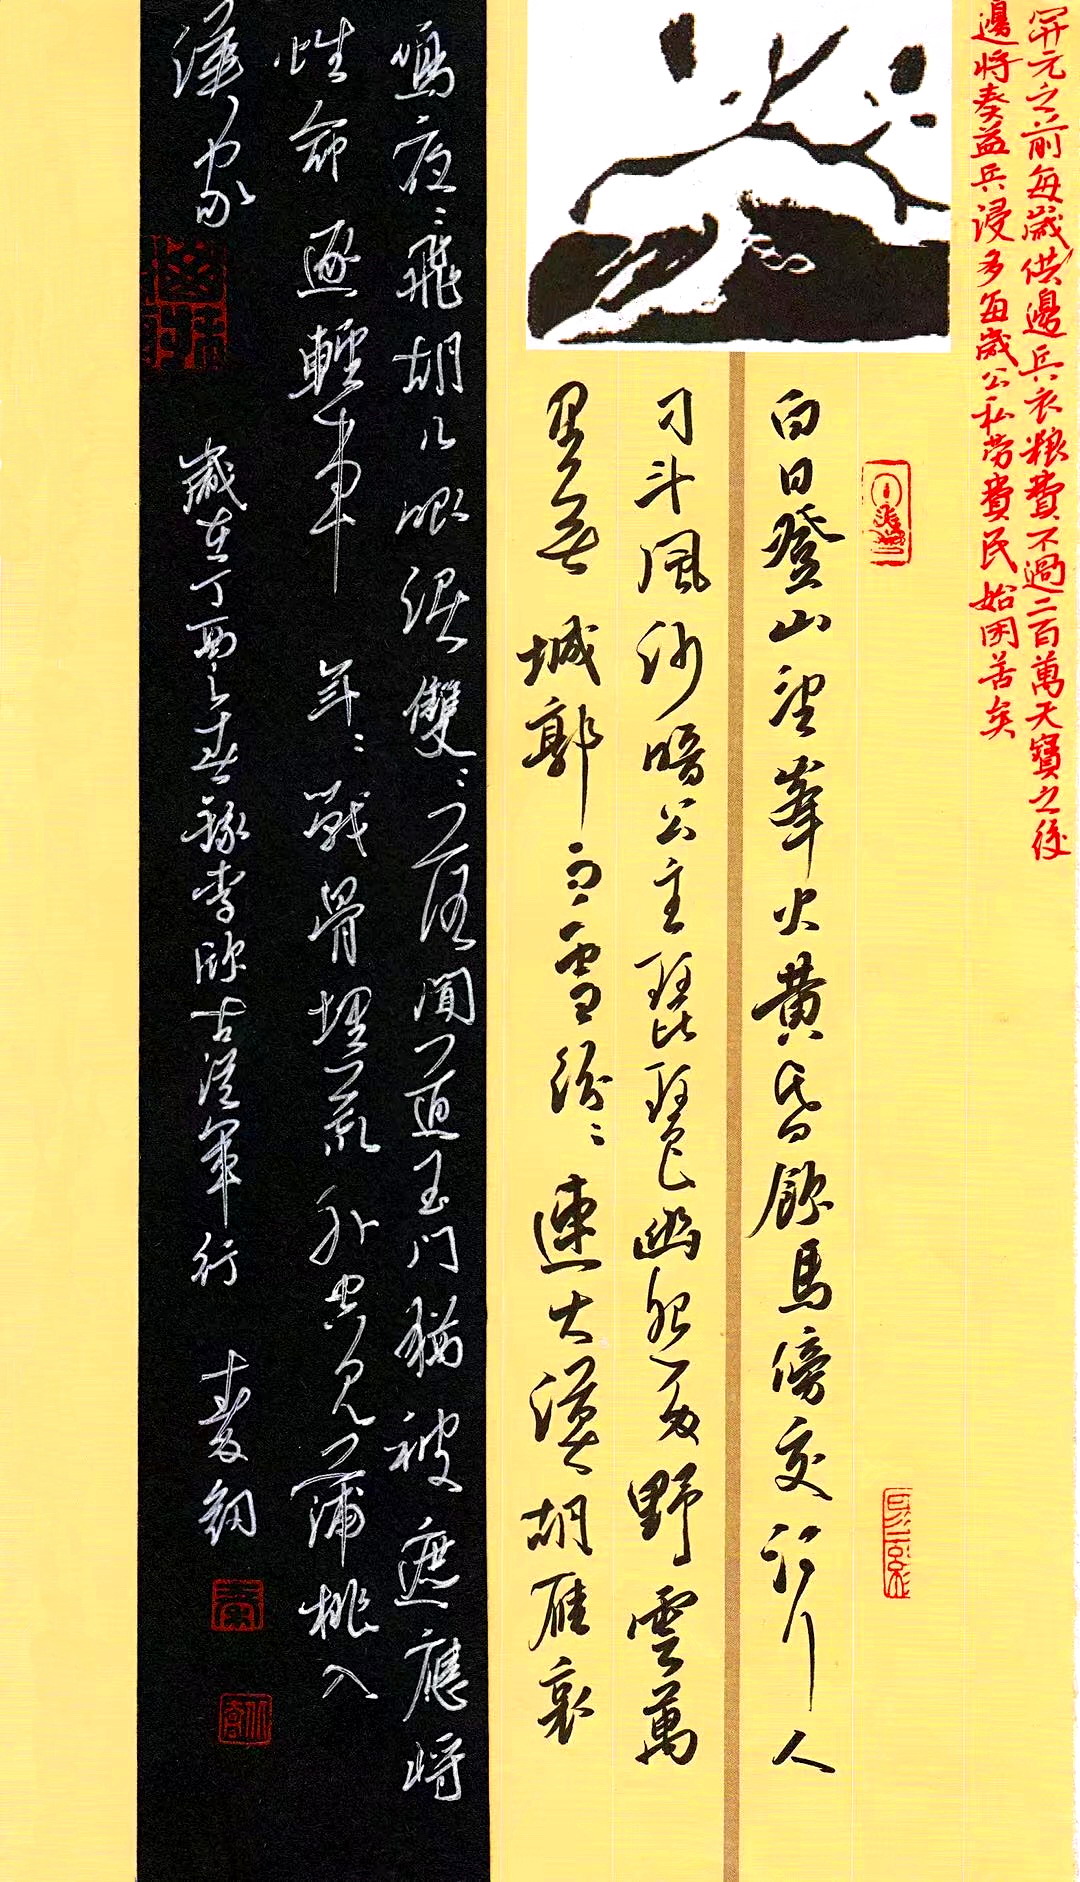 開元之前每歲供邊兵衣粮費不過二百萬天寶之後
邊將奏益兵浸多每歲公私勞費民始困苦矣
白日登山望峯火黃昏飲馬傍交河行人
刁斗風沙暗公主琵琶幽怨多野雲萬
里無城郭雨雪紛〻連大漠胡雁哀
鳴夜〻飛胡兒眼淚雙〻落聞道玉門猶被遮應將
性命逐輕車年〻戰骨埋荒外空見蒲桃入
漢家
歲在丁酉之春錄李頎古從軍行